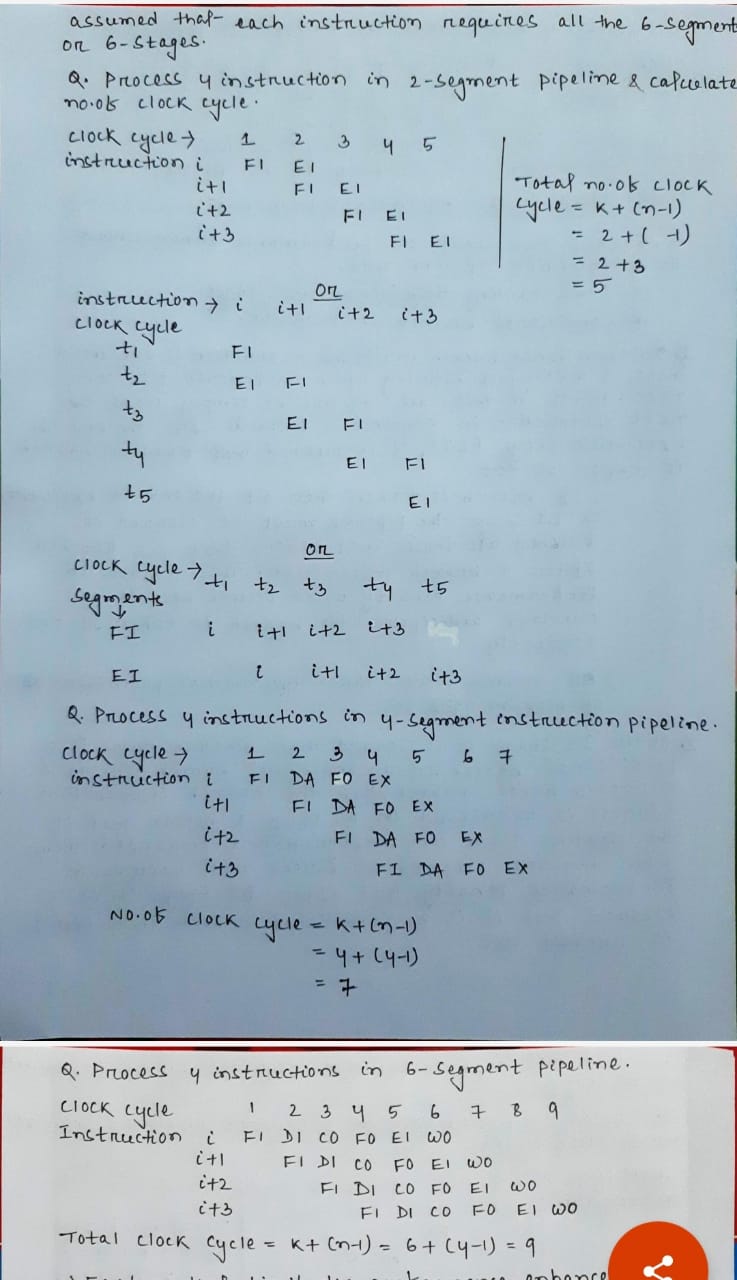 assumed that each instruction requires all the 6-segment
or 6-stages.
Q. Process 4 instruction in 2-segment pipeline & calculate
no.of clock cycle.
clock cycle → 1 2 3 4 5
instruction i FI EI
i+1 FI EI
i+2 FI EI
i+3 FI EI
Total no.of clock
cycle = K+(n-1)
= 2+( -1)
= 2+3
= 5
or
instruction → i i+1 i+2 i+3
clock cycle
t1 FI
t2 EI FI
t3 EI FI
t4 EI FI
t5 EI
or
clock cycle → t1 t2 t3 t4 t5
segments
↓
FI i i+1 i+2 i+3
EI i i+1 i+2 i+3
Q. Process 4 instructions in 4-segment instruction pipeline.
clock cycle → 1 2 3 4 5 6 7
instruction i FI DA FO EX
i+1 FI DA FO EX
i+2 FI DA FO EX
i+3 FI DA FO EX
No.of clock cycle = K+(n-1)
= 4+(4-1)
= 7
Q. Process 4 instructions in 6-segment pipeline.
clock cycle 1 2 3 4 5 6 7 8 9
Instruction i FI DI CO FO EI WO
i+1 FI DI CO FO EI WO
i+2 FI DI CO FO EI WO
i+3 FI DI CO FO EI WO
Total clock cycle = K+(n-1) = 6+(4-1) = 9